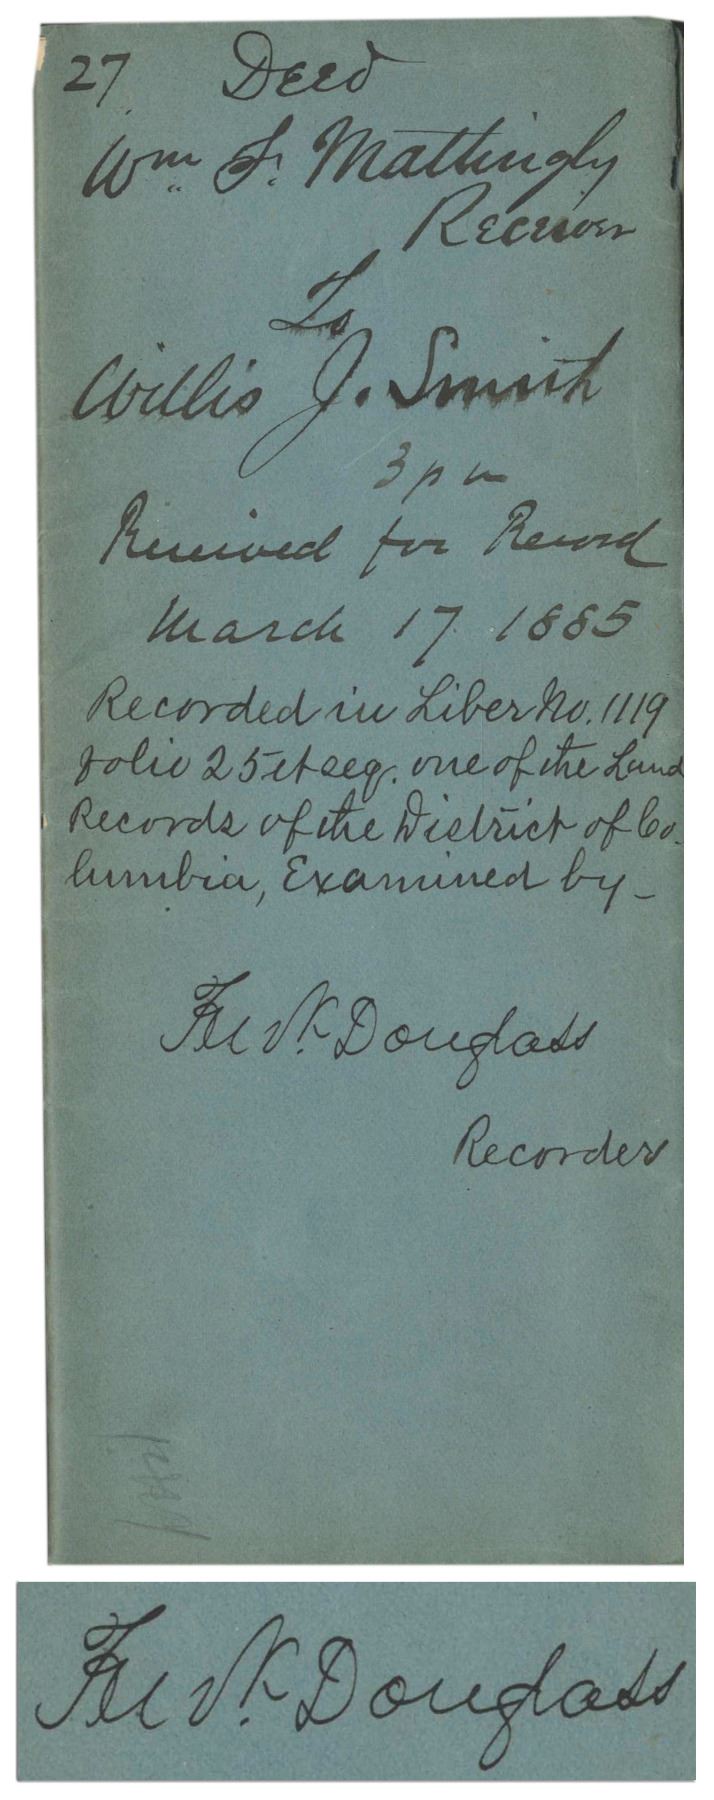 27 Deed
Wm F. Mattingly
Receiver
To
Willis J. Smith
3 p m
Received for Record
March 17 1885
Recorded in Liber No. 1119
folio 25 et seq. one of the Land
Records of the District of Co-
lumbia, Examined by-
Fredk. Douglass
Recorder
Fredk. Douglass